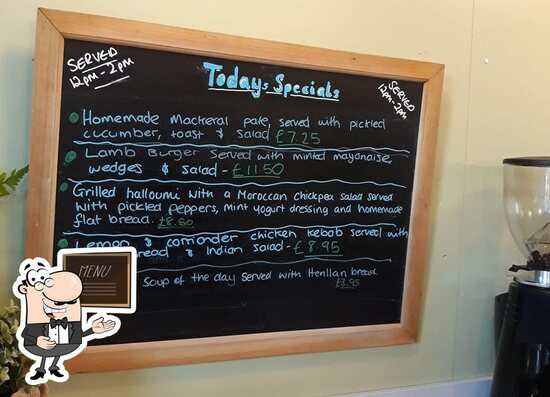 SERVED
12pm - 2pm
Todays Specials
SERVED
12pm - 2pm
Homemade Mackeral pate, served with pickled
cucumber, toast & salad £7.25
Lamb Burger served with minted mayonaise,
wedges & salad - £11.50
Grilled halloumi with a Moroccan chickpea salad served
with pickled peppers, mint yogurt dressing and homemade
flat bread. £8.50
Lemon & corriander chicken kebab served with
bread & Indian salad - £8.95
Soup of the day served with Henllan bread.
£3.95
MENU